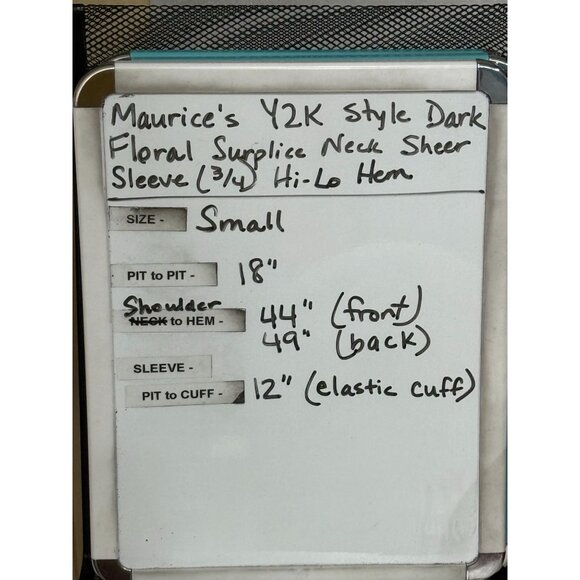 Maurice's Y2K Style Dark
Floral Surplice Neck Sheer
Sleeve (3/4) Hi-Lo Hem
SIZE - Small
PIT to PIT - 18"
Shoulder
NECK to HEM - 44" (front)
49" (back)
SLEEVE -
PIT to CUFF - 12" (elastic cuff)